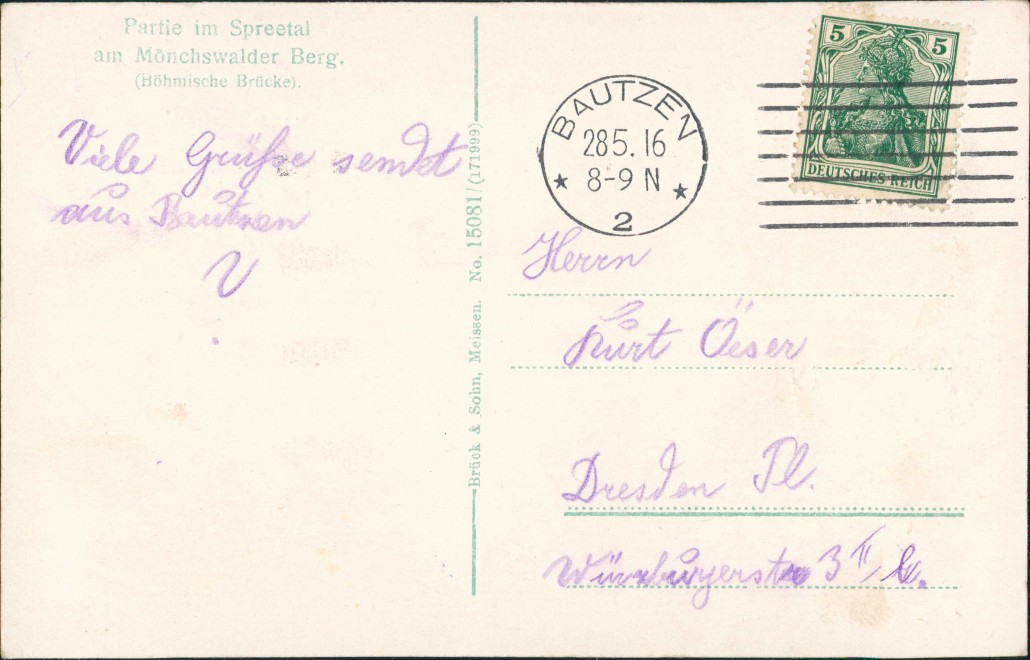 Partie im Spreetal
am Mönchswalder Berg.
(Böhmische Brücke).
Viele Grüße sendet
aus Bautzen
V
Brück & Sohn, Meissen. No. 15081/(171999)
BAUTZEN
28.5.16
8-9 N
2
5 5
DEUTSCHES REICH
Herrn
Kurt Öeser
Dresden Pl.
Würzburgerstr 3 II, l.